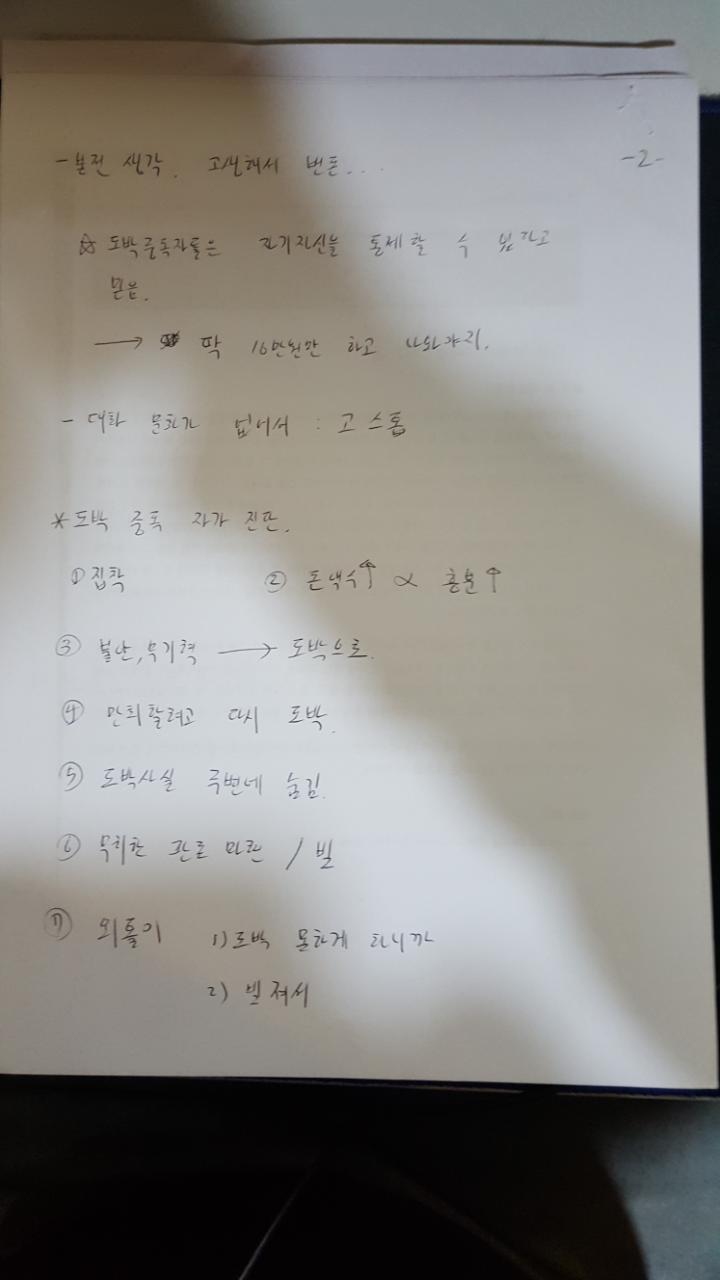 - 본전 생각. 고생해서 번돈...
-2-
☆ 도박중독자들은 자기자신을 통제할 수 있다고
믿음.
→ 딱 10만원만 하고 나와야지.
- 대화 문화가 없어서 : 고스톱
* 도박 중독 자가 진단.
① 집착 ② 돈 액수↑ ∝ 흥분↑
③ 불안, 무기력 → 도박으로.
④ 만회할려고 다시 도박.
⑤ 도박사실 주변에 숨김.
⑥ 무리한 마련 / 빚
⑦ 외톨이 1) 도박 못하게 하니까
2) 빚 져서